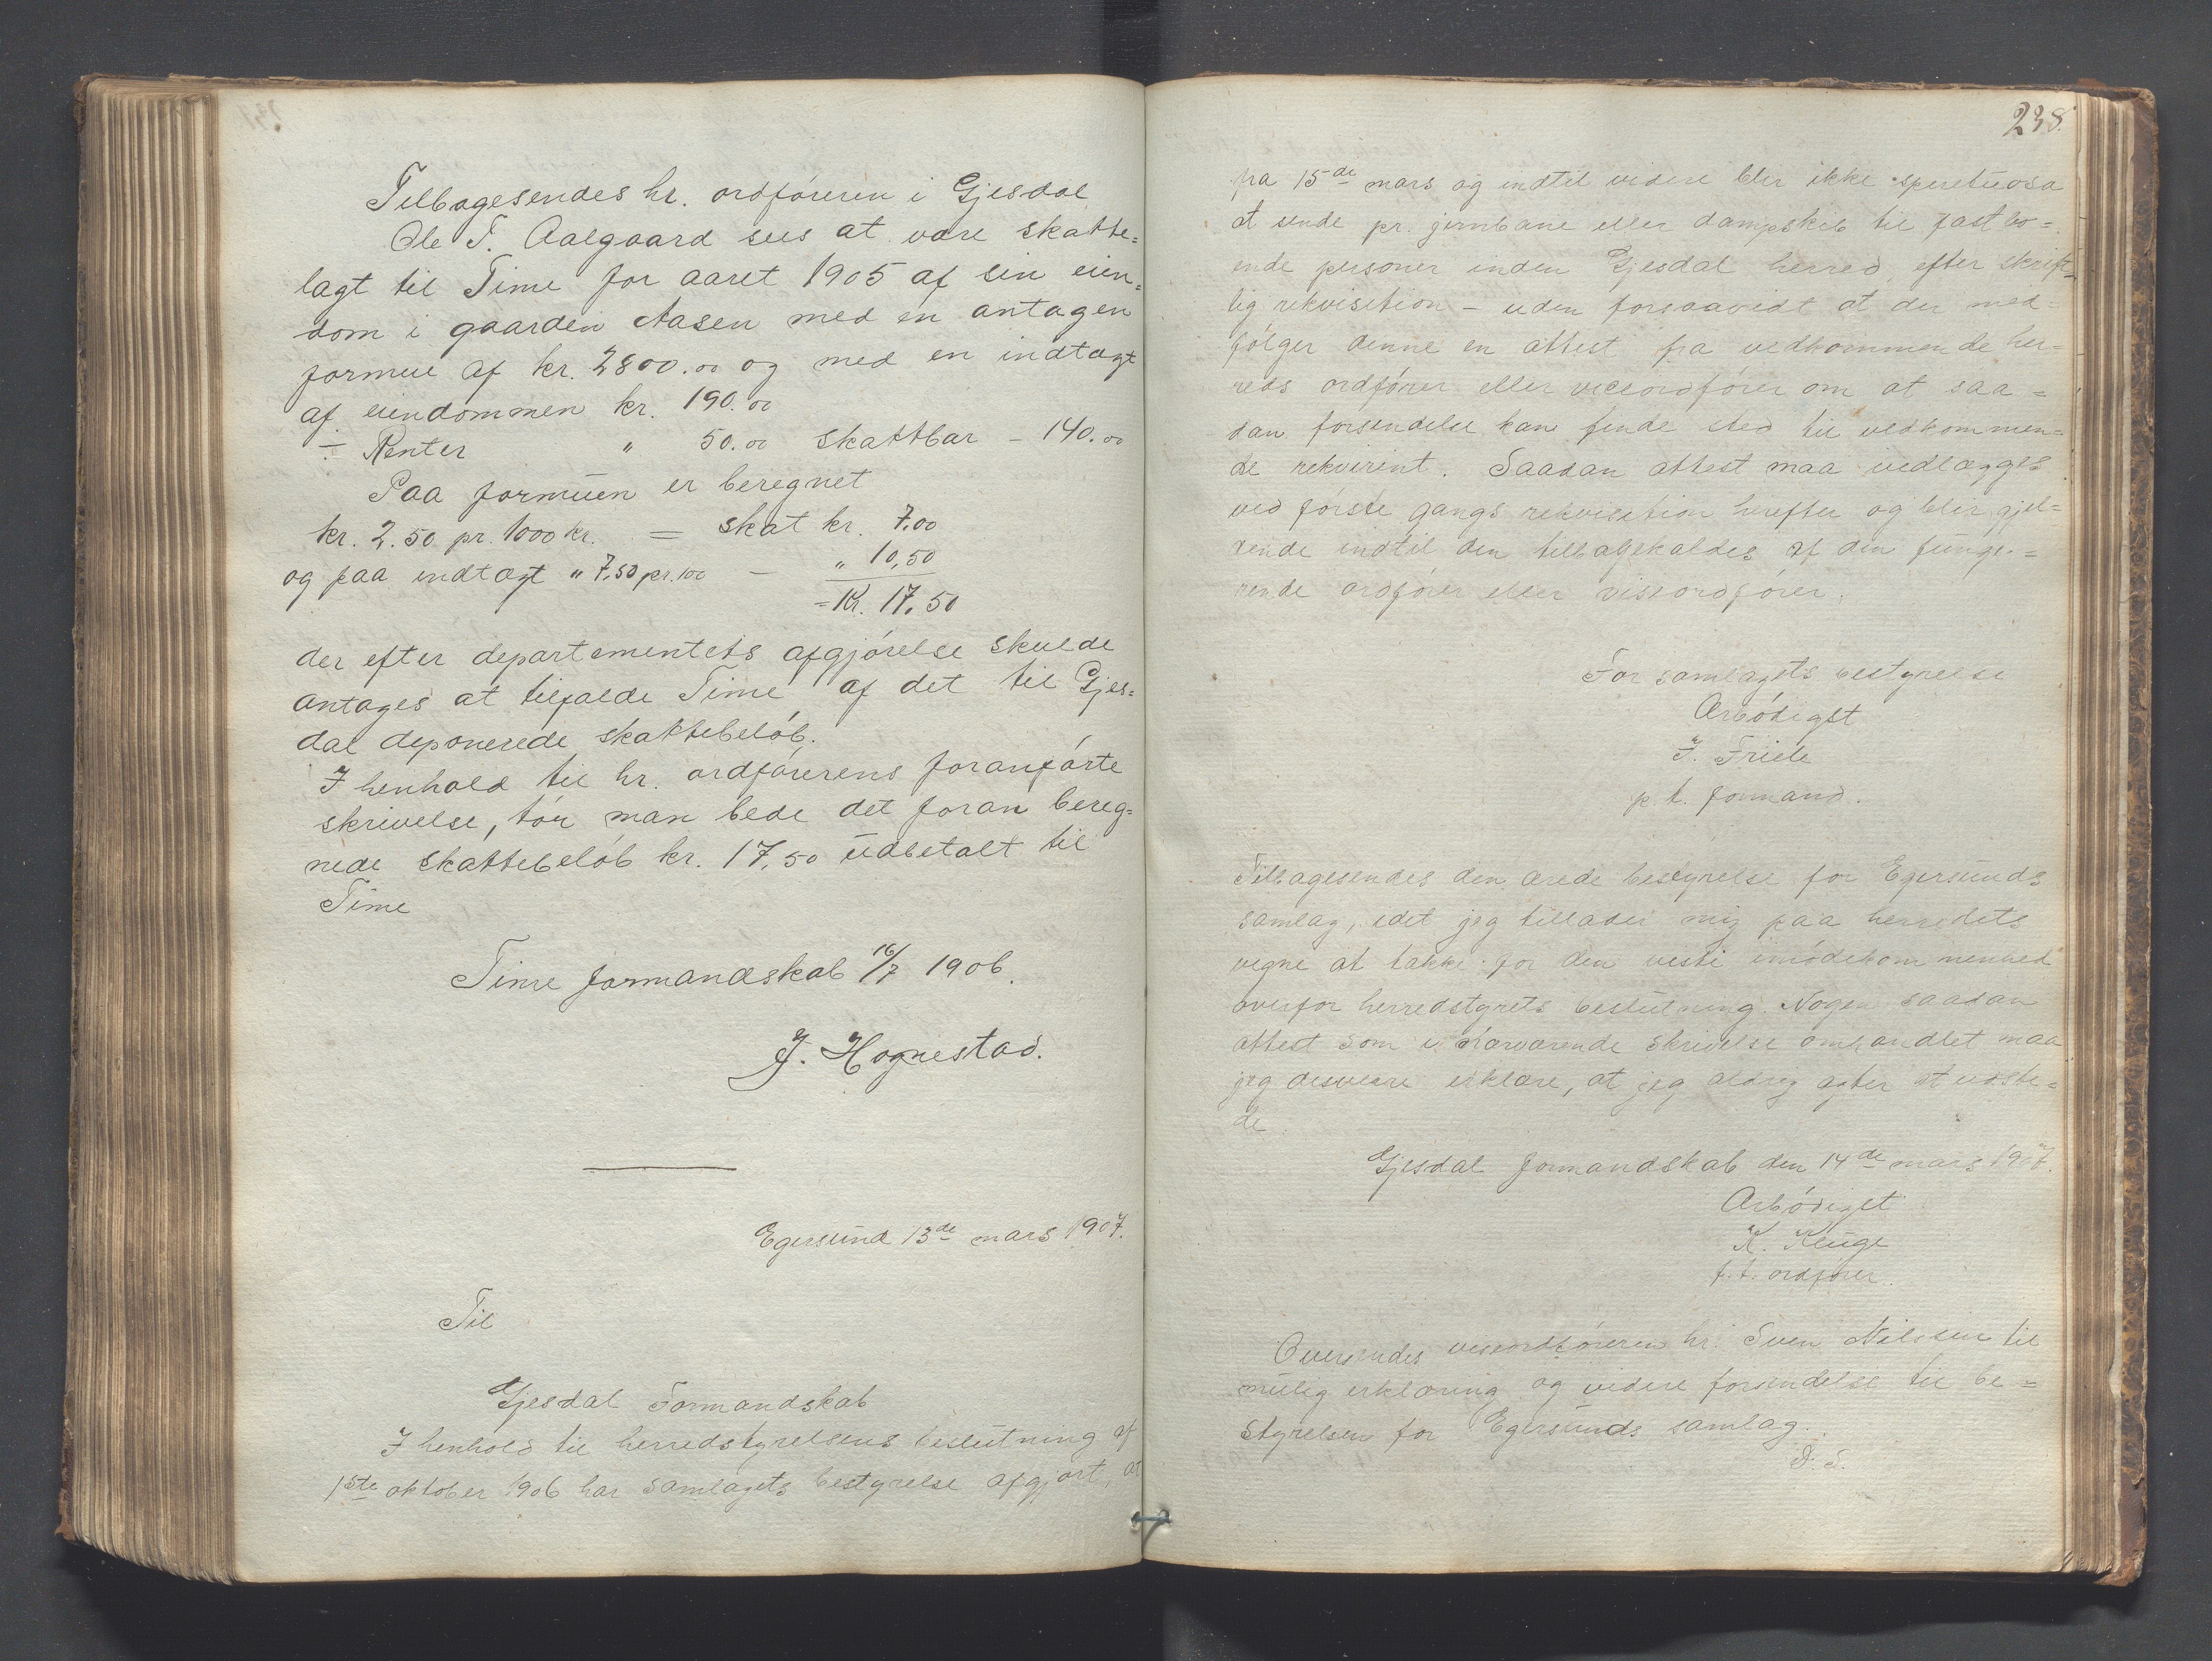 Tilbagesendes hr. ordføreren i Gjesdal
Ole T. Aalgaard sees at være skatte=
lagt til Time for aaret 1905 af sin eien=
dom i gaarden Aasen med en antagen
formue af kr. 2800.00 og med en indtægt
af eiendommen kr. 190.00
÷ Renter " 50.00 skattbar - 140.00
Paa formuen er beregnet
kr. 2.50 pr. 1000 kr. = skat kr. 7.00
og paa indtægt " 7,50 pr. 100 — " 10,50
= Kr. 17,50
der efter departementets afgjørelse skulde
antages at tilfalde Time af det til Gjes=
dal deponerede skattebeløb.
I henhold til hr. ordførerens foranførte
skrivelse, tør man bede det foran bereg=
nede skattebeløb kr. 17,50 udbetalt til
Time
Time formandskab 16/7 1906.
J. Hognestad.
Egersund 13de mars 1907.
Til
Gjesdal Formandskab
I henhold til herredstyrelsens beslutning af
1ste oktober 1906 har samlagets bestyrelse afgjort, at
238.
fra 15de mars og indtil videre blir ikke spirituosa
at sende pr. jernbane eller dampskib til fastbo=
ende personer inden Gjesdal herred efter skrift=
lig rekvisition – uden forsaavidt at der med
følger denne en attest fra vedkommende her=
reds ordfører eller viceordfører om at saa=
dan forsendelse kan finde sted til vedkommen=
de rekvirent. Saadan attest maa vedlægges
ved første gangs rekvisition herefter og blir gjel=
dende indtil den tilbagekaldes af den funge=
rende ordfører eller viseordfører.
For samlagets bestyrelse
Ærbødigst
J. Friele
p. t. formand.
Tilbagesendes den ærede bestyrelse for Egersunds
samlag, idet jeg tillader mig paa herredets
vegne at takke for den viste imødekommenhed
overfor herredstyrets beslutning. Nogen saadan
attest som i nærværende skrivelse omhandlet maa
jeg desværre erklære, at jeg aldrig agter at udste=
de.
Gjesdal formandskab den 14de mars 1907.
Ærbødigst
K. Kluge
f. t. ordfører.
Oversendes viseordføreren hr. Sven Nilssen til
mulig erklæring og videre forsendelse til be=
styrelsen for Egersunds samlag.
D. S.